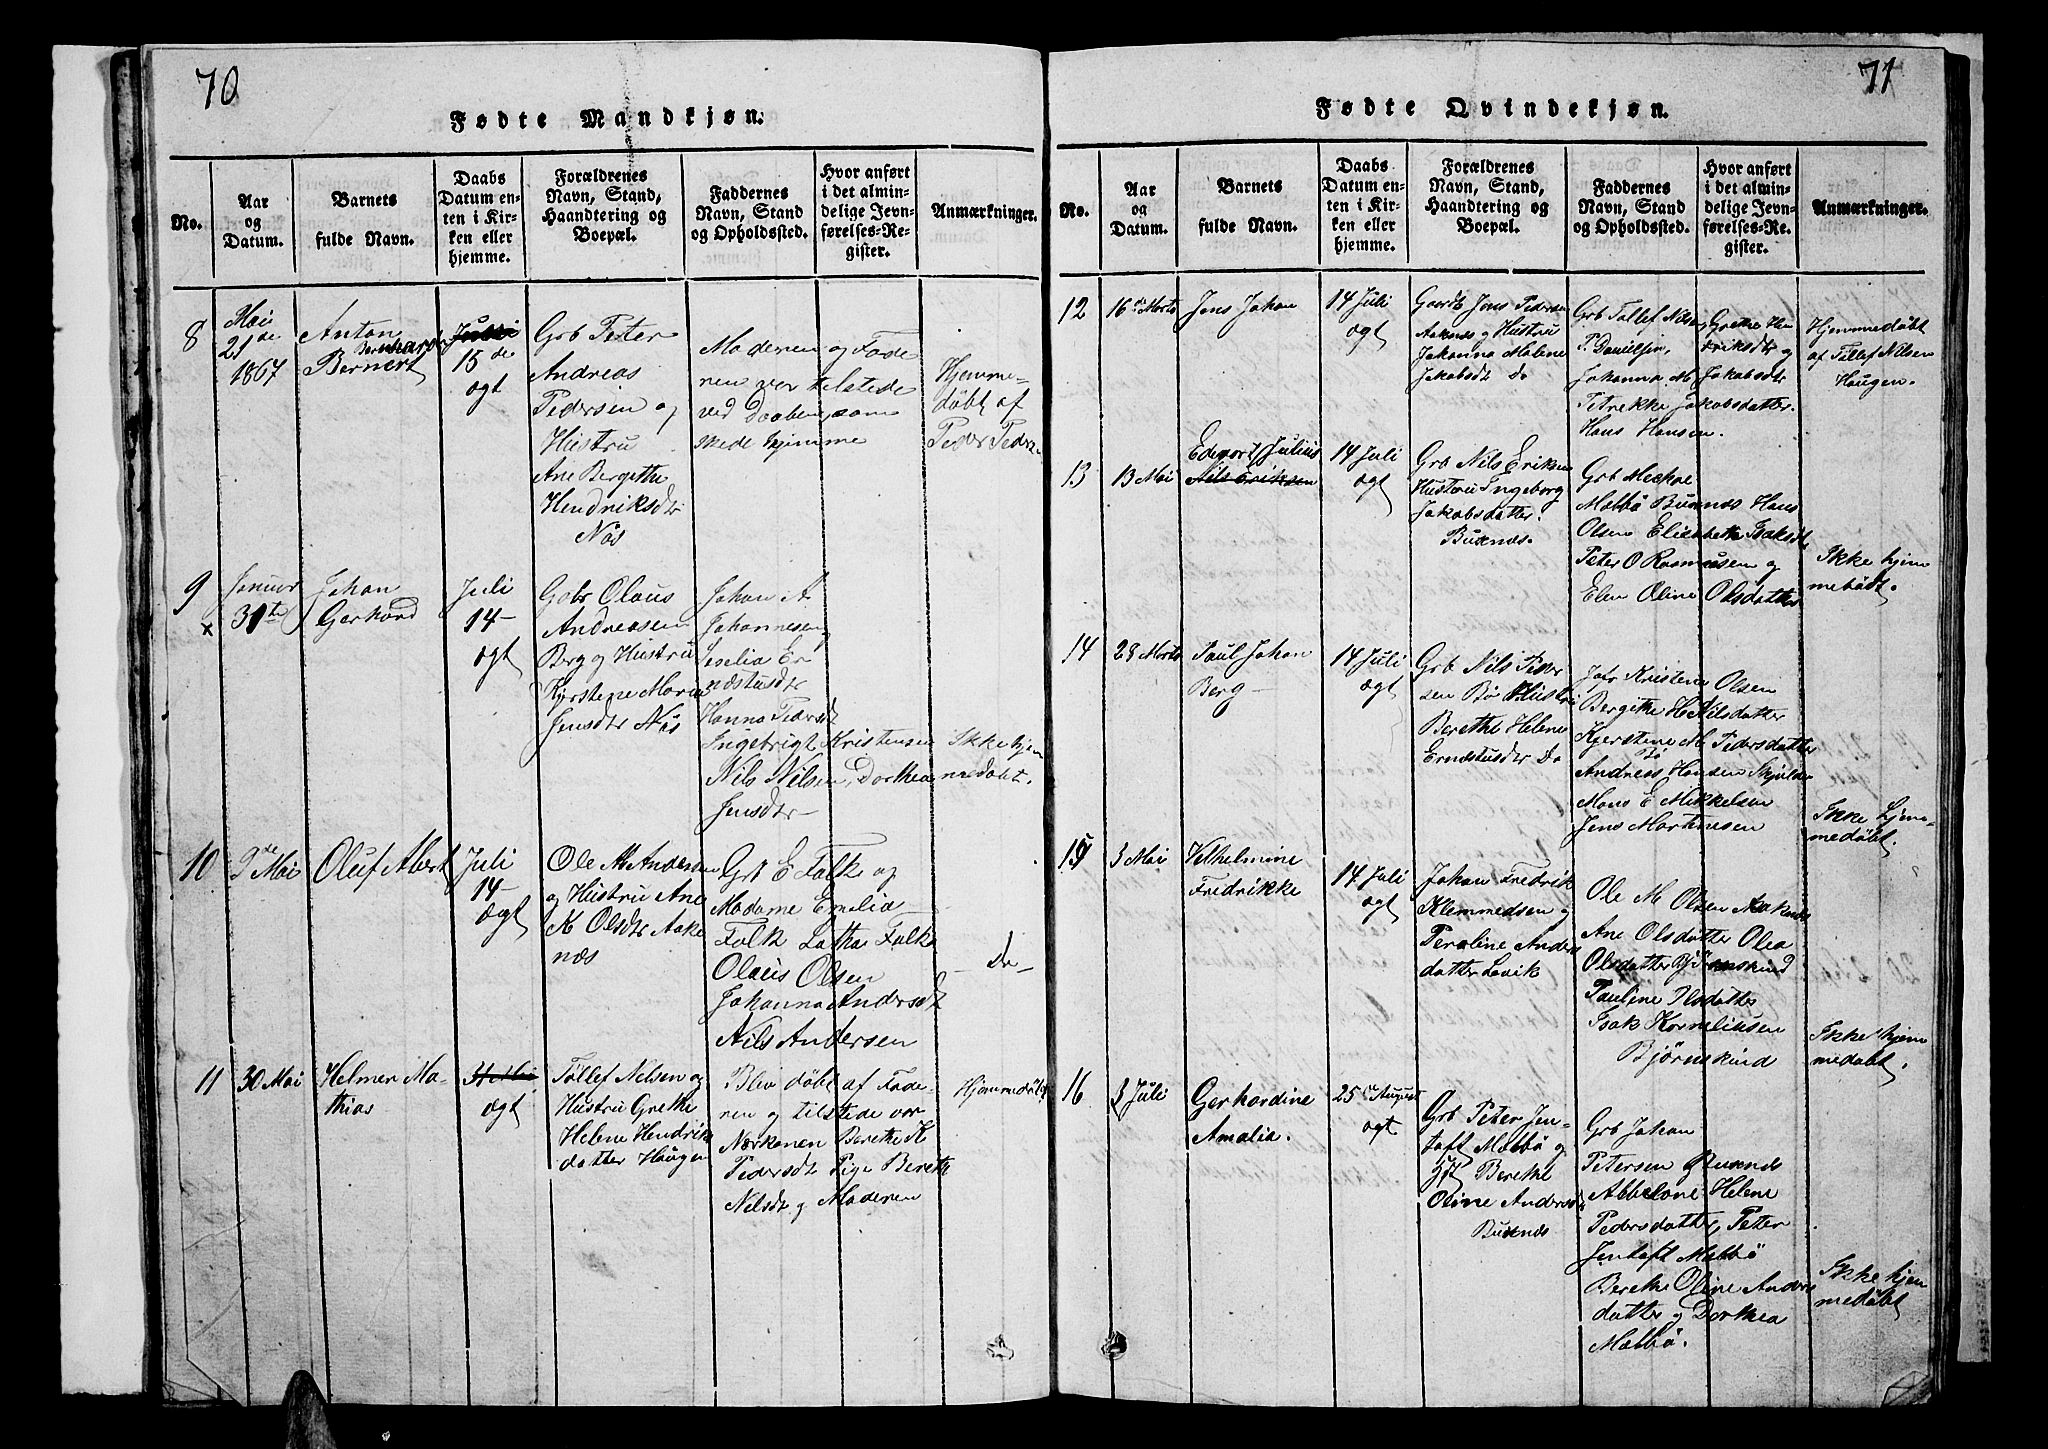 70
Fødte Mandkjøn.
No.
Aar
og
Datum.
Barnets
fulde Navn.
Daabs
Datum en-
ten i Kir-
ken eller
hjemme.
Forældrenes
Navn, Stand,
Haandtering og
Boepæl.
Faddernes
Navn, Stand
og Opholdssted.
Hvor anført
i det almin-
delige Jevn-
førelses-Re-
gister.
Anmærkninger.
8
Mai
21de
1867
Anton
Bernhard
Bernert
Juli
15de
ogt
Grb Peter
Andreas
Pedersen og
Hustru
Ane Bergitte
Hendriksdtr
Nøs
Moderen og Fade
ren var tilstede
ved Daaben som
skede hjemme
Hjemme-
døbt af
Peder Peders
9
x
Januar
31te
Johan
Gerhard
Juli
14-
ogt
Gbr Olaus
Andreasen
Berg og Hustru
Kjerstene Maria
Jensdtr Nøs
Johan A
Johannesen
Seselia Er
nestusdtr
Hanna Pedersdt
Ingebrigt Kristensen
Nils Nilsen, Dorthea
Jensdtr -
Ikke hjem
medøbt.
10
9de Mai
Oluf Albert
Juli
14-
ægt
Ole M Andersen
og Hustru Ane
K Olsdtr Aake
næs
Grb E Falk og
Madame Emilia
Falk Lathar Falk
Olaus Olsen
Johanna Andersdt
Nils Andersen
- Do -
11
30 Mai
Helmer Ma-
thias
31 Mai
ægt
Tollef Nelsen og
Hustru Grethe
Helene Hendriks
datter Haugen
Blev døbt af Fade-
ren og tilstede var
Nærkonen Berethe K
Pedersdt Pige Bereth
Nelsdt og Moderen
Hjemmedøbt
71
Fødte Qvindekjøn.
No.
Aar
og
Datum.
Barnets
fulde Navn.
Daabs
Datum en-
ten i Kir-
ken eller
hjemme.
Forældrenes
Navn, Stand,
Haandtering og
Boepæl.
Faddernes
Navn, Stand
og Opholdssted.
Hvor anført
i det almin-
delige Jevn-
førelses-Re-
gister.
Anmærkninger.
12
16de Marts
Jens Johan
14 Juli
ogt
Gaardb Jens Pedersen
Aaknes og Hustru
Johanna Malene
Jakobsdt Do
Grb Tollef Nilsen, Grethe Hen
P. Danielsen, driksdtr og
Johanna M Jakobsdtr
Petrekke Jakobsdatter.
Hans Hansen.
Hjemmedøbt
af Tollef Nilsen
Haugen.
13
13 Mai
Edevart Julius
Nils Eriksen
14 Juli
ogt
Grb Nils Eriksen
Hustru Ingeborg
Jakobsdatter.
Buknæs.
Grb Meckal
Mebbø Buknæs Hans
Olsen Elisabeth Isaksdt
Peter O Rasmussen og
Elen Oline Olsdatter
Ikke hjem
medøbt.
14
28 Marts
Paul Johan
Berg -
14 Juli
ægt
Grb Nils Peder
sen Bø Hustru
Berethe Helene
Erndstusdtr Do
Jofr Kristene Olsen
Bergithe H Nilsdatter
Kjerstene M Pedersdatter
Bø
Andreas Hansen Skjolder
Mons E Mikkelsen
Jens Martinesen
Ikke hjem-
medøbt.
15
3 Mai
Vilhelmine
Fredrikke
14 Juli
ogt
Johan Fredrik
Klemmedsen og
Peroline Anders
datter Lovik
Ole M Olsen Aaknæs
Ane Olsdatter Olea
Olsdatter Bjørnskind
Pauline Ilsdatter
Isak Korneliussen
Bjørnskind
Ikke hjem
medøbt.
16
3 Juli
Gerhardine
Amalia.
25de August
ogt
Grb Peter Jen-
toft Mebbø og
Hst Berethe
Oline Andersdt
Buknæs
Grb Johan
Petersen Buknæs
Abbelone Helene
Pedersdatter, Peter
Jentoft Mebbø
Berethe Oline Anders
datter og Dorthea
Mebbø.
Ikke hjem
medøbt